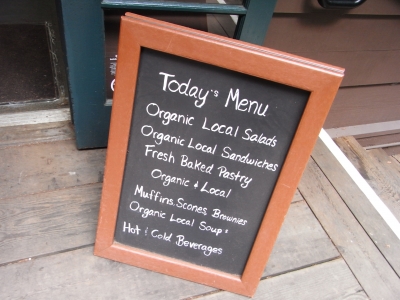 Today's Menu
Organic Local Salads
Organic Local Sandwiches
Fresh Baked Pastry
Organic & Local
Muffins, Scones, Brownies
Organic Local Soups
Hot & Cold Beverages